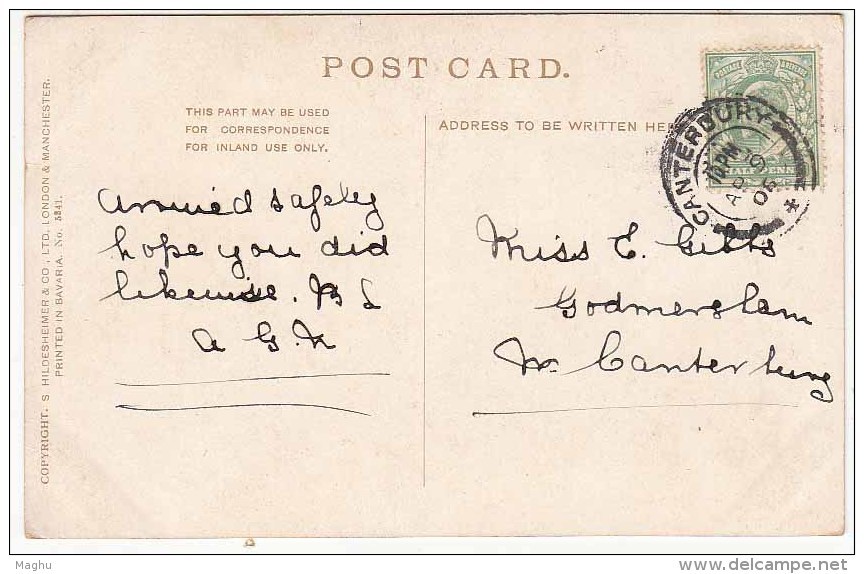 POST CARD.
THIS PART MAY BE USED
FOR CORRESPONDENCE
FOR INLAND USE ONLY.
ADDRESS TO BE WRITTEN HE
CANTERBURY
10 PM
AP 19
06
HALFPENNY
Arrived safely
hope you did
likewise.
A G K
Miss E. Gibbs
Godmersham
Nr. Canterbury
COPYRIGHT. S HILDESHEIMER & CO, LTD. LONDON & MANCHESTER.
PRINTED IN BAVARIA. No. 5341.
Maghu
delcampe.net